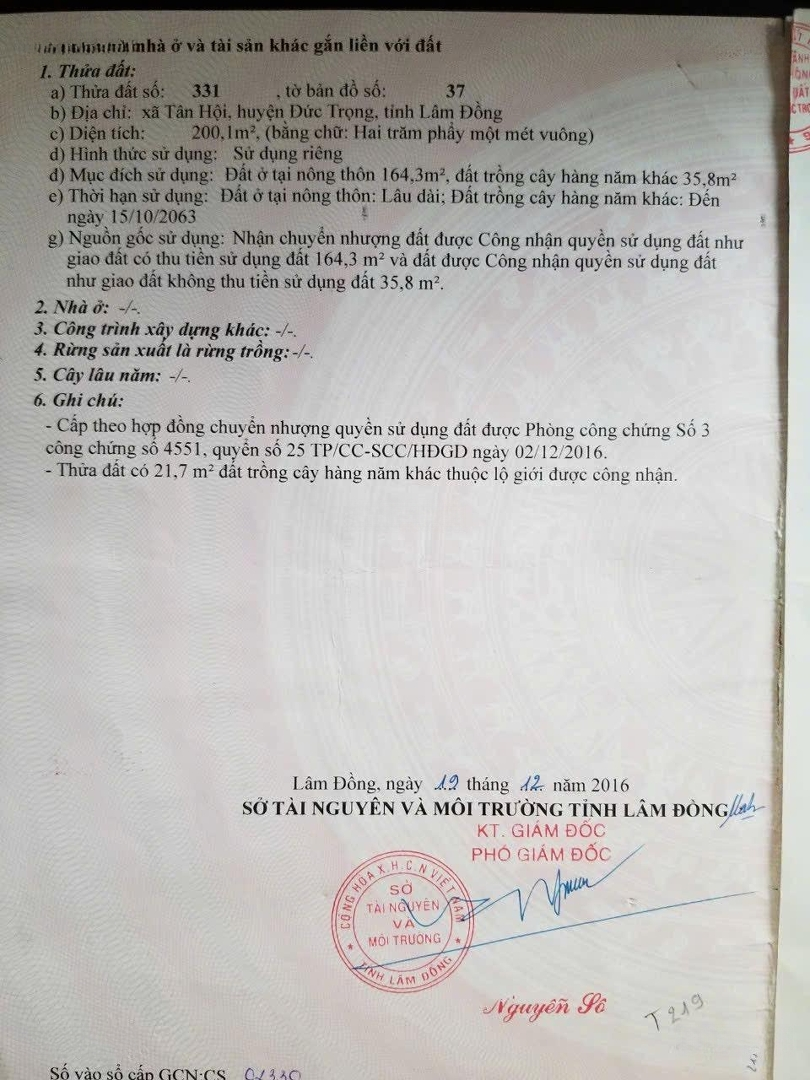 nhà ở và tài sản khác gắn liền với đất
1. Thửa đất:
a) Thửa đất số: 331 , tờ bản đồ số: 37
b) Địa chỉ: xã Tân Hội, huyện Đức Trọng, tỉnh Lâm Đồng
c) Diện tích: 200,1m², (bằng chữ: Hai trăm phẩy một mét vuông)
d) Hình thức sử dụng: Sử dụng riêng
đ) Mục đích sử dụng: Đất ở tại nông thôn 164,3m², đất trồng cây hàng năm khác 35,8m²
e) Thời hạn sử dụng: Đất ở tại nông thôn: Lâu dài; Đất trồng cây hàng năm khác: Đến
ngày 15/10/2063
g) Nguồn gốc sử dụng: Nhận chuyển nhượng đất được Công nhận quyền sử dụng đất như
giao đất có thu tiền sử dụng đất 164,3 m² và đất được Công nhận quyền sử dụng đất
như giao đất không thu tiền sử dụng đất 35,8 m².
2. Nhà ở: -/-.
3. Công trình xây dựng khác: -/-.
4. Rừng sản xuất là rừng trồng: -/-.
5. Cây lâu năm: -/-.
6. Ghi chú:
- Cấp theo hợp đồng chuyển nhượng quyền sử dụng đất được Phòng công chứng Số 3
công chứng số 4551, quyển số 25 TP/CC-SCC/HĐGD ngày 02/12/2016.
- Thửa đất có 21,7 m² đất trồng cây hàng năm khác thuộc lộ giới được công nhận.
Lâm Đồng, ngày 19 tháng 12 năm 2016
SỞ TÀI NGUYÊN VÀ MÔI TRƯỜNG TỈNH LÂM ĐỒNG
KT. GIÁM ĐỐC
PHÓ GIÁM ĐỐC
CỘNG HÒA X.H.C.N VIỆT NAM
SỞ
TÀI NGUYÊN
VÀ
MÔI TRƯỜNG
TỈNH LÂM ĐỒNG
Nguyễn Số
T219
Số vào sổ cấp GCN:CS 01330